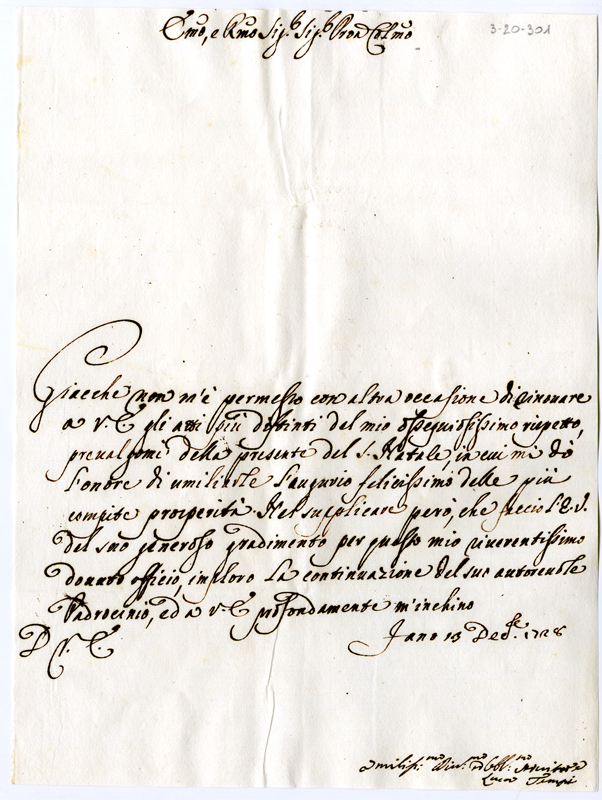 Emo, e Rmo Sig.r Sig.r Pron Colmo
3-20-301
Giacche non m'è permesso con altra occasione di rinovare
a V.E. gli atti più distinti del mio ossequiosissimo rispetto,
prevalgomi della presente del S. Natale, in cui mi dò
l'onore di umiliarle l'augurio felicissimo delle più
compite prosperità. Nel supplicare però, che faccio l'E.V.
del suo generoso gradimento per questo mio riverentissimo
dovuto officio, imploro la continuazione del suo autorevole
Padrocinio, ed a V.E. profondamente m'inchino
D. V. E.
Jano 13 Dec.re 1728
Umilis.mo Div.mo Obbl.mo Servitore
Luca Tempi